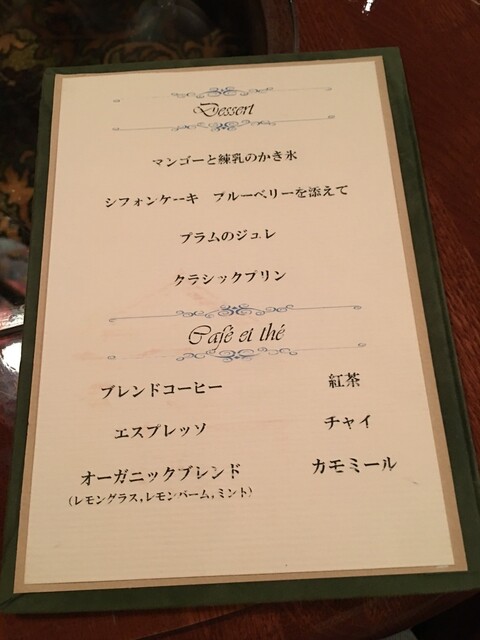 Dessert
マンゴーと練乳のかき氷
シフォンケーキ　ブルーベリーを添えて
プラムのジュレ
クラシックプリン
Café et thé
ブレンドコーヒー　紅茶
エスプレッソ　チャイ
オーガニックブレンド　カモミール
(レモングラス,レモンバーム,ミント)